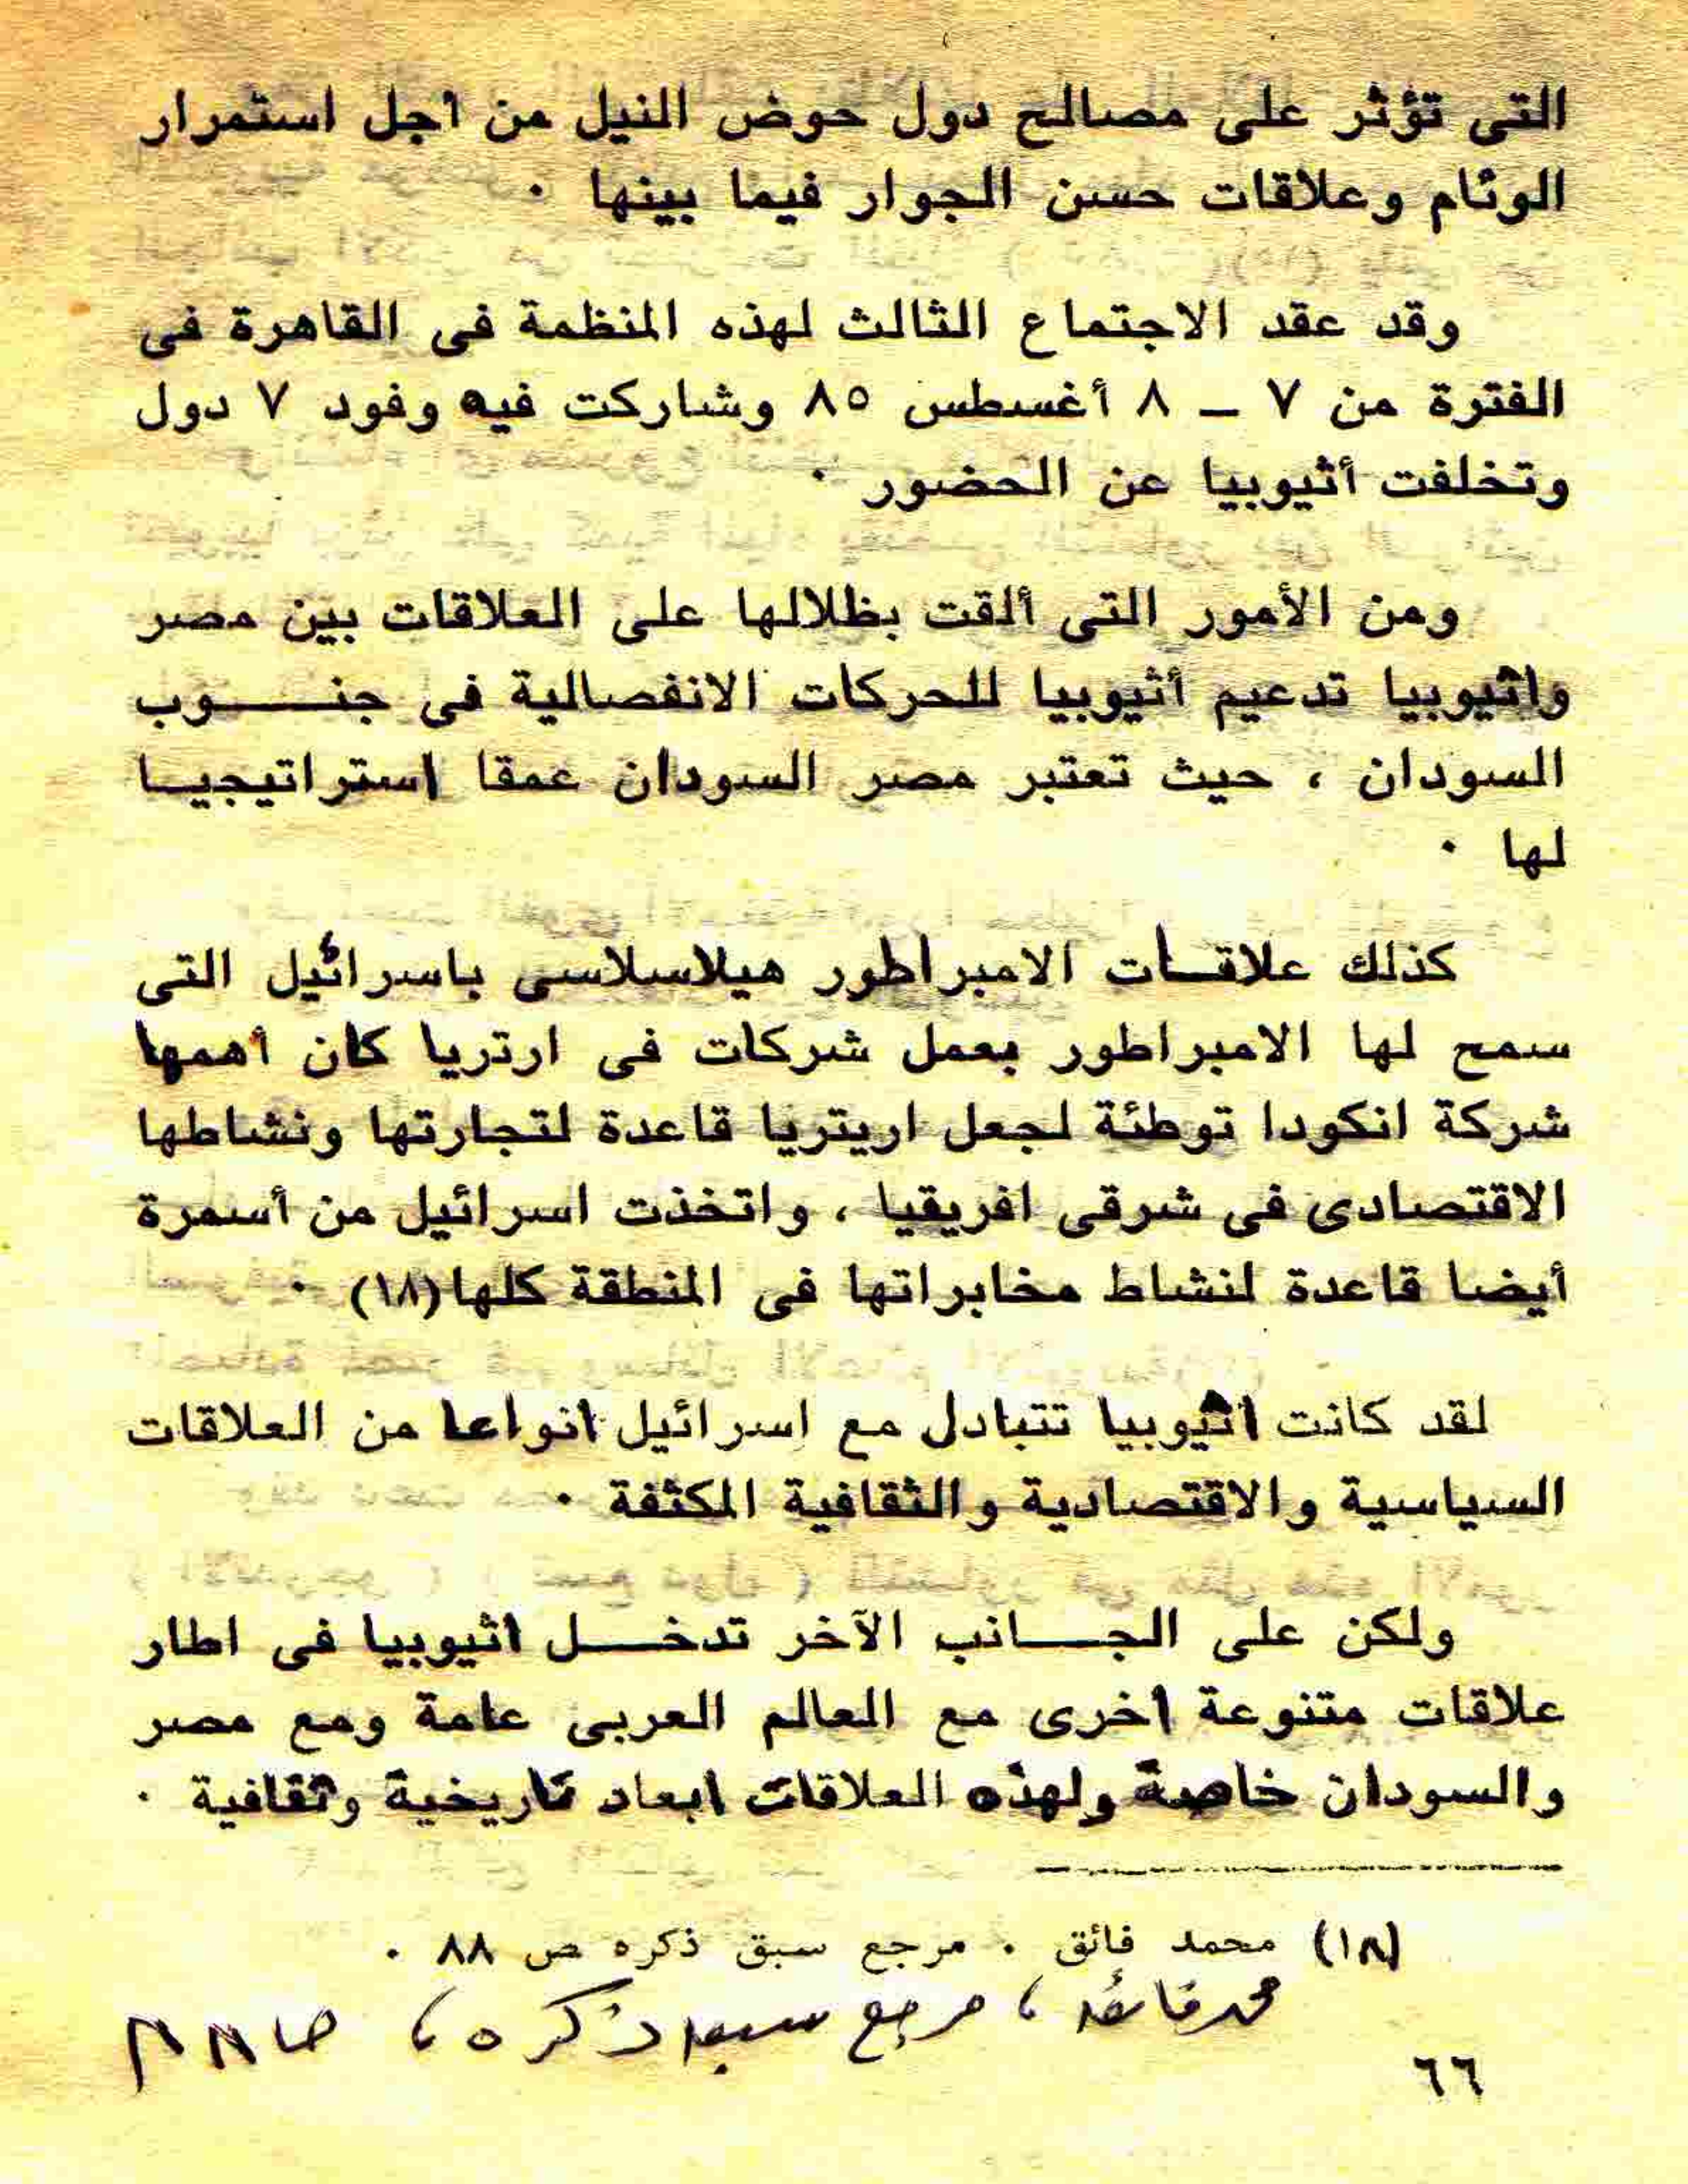 التى تؤثر على مصالح دول حوض النيل من اجل استمرار
الوئام وعلاقات حسن الجوار فيما بينها .
وقد عقد الاجتماع الثالث لهذه المنظمة فى القاهرة فى
الفترة من ٧ ــ ٨ أغسطس ٨٥ وشاركت فيه وفود ٧ دول
وتخلفت أثيوبيا عن الحضور .
ومن الأمور التى ألقت بظلالها على العلاقات بين مصر
واثيوبيا تدعيم أثيوبيا للحركات الانفصالية فى جنـــــوب
السودان ، حيث تعتبر مصر السودان عمقا استراتيجيـا
لها .
كذلك علاقـات الامبراطور هيلاسلاسى باسرائيل التى
سمح لها الامبراطور بعمل شركات فى ارتريا كان أهمها
شركة انكودا توطئة لجعل اريتريا قاعدة لتجارتها ونشاطها
الاقتصادى فى شرقى افريقيا ، واتخذت اسرائيل من أسمرة
أيضا قاعدة لنشاط مخابراتها فى المنطقة كلها(١٨) .
لقد كانت اثيوبيا تتبادل مع اسرائيل انواعا من العلاقات
السياسية والاقتصادية والثقافية المكثفة .
ولكن على الجـــانب الآخر تدخـــل اثيوبيا فى اطار
علاقات متنوعة اخرى مع العالم العربى عامة ومع مصر
والسودان خاصة ولهذه العلاقات ابعاد تاريخية وثقافية .
(١٨) محمد فائق . مرجع سبق ذكره ص ٨٨ .
محمد فائق ، مرجع سبق ذكره ، ص ٨٨
٦٦